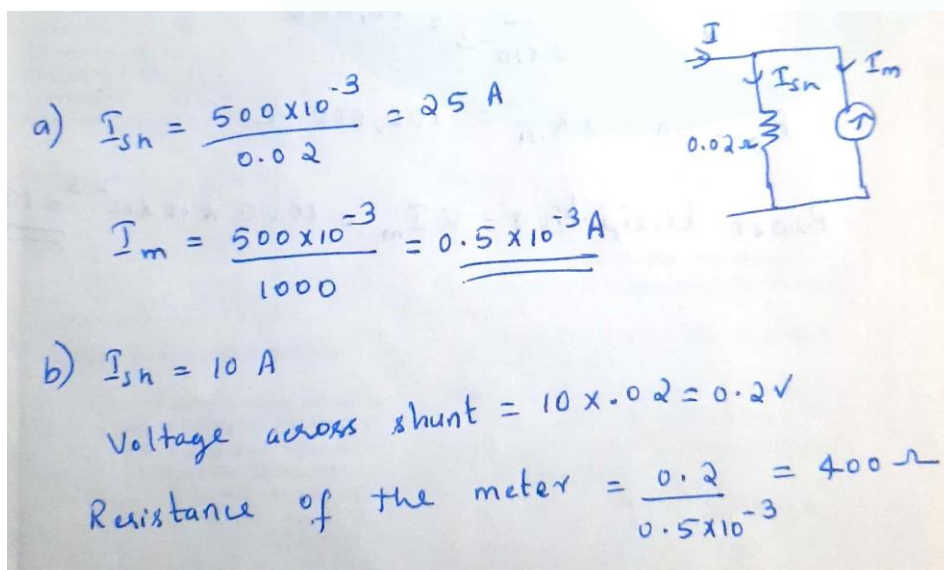 a) Ish = 500×10⁻³ / 0.02 = 25 A
Im = 500×10⁻³ / 1000 = 0.5×10⁻³ A
I
Ish
Im
0.02Ω
b) Ish = 10 A
Voltage across shunt = 10 × .02 = 0.2 V
Resistance of the meter = 0.2 / 0.5×10⁻³ = 400 Ω